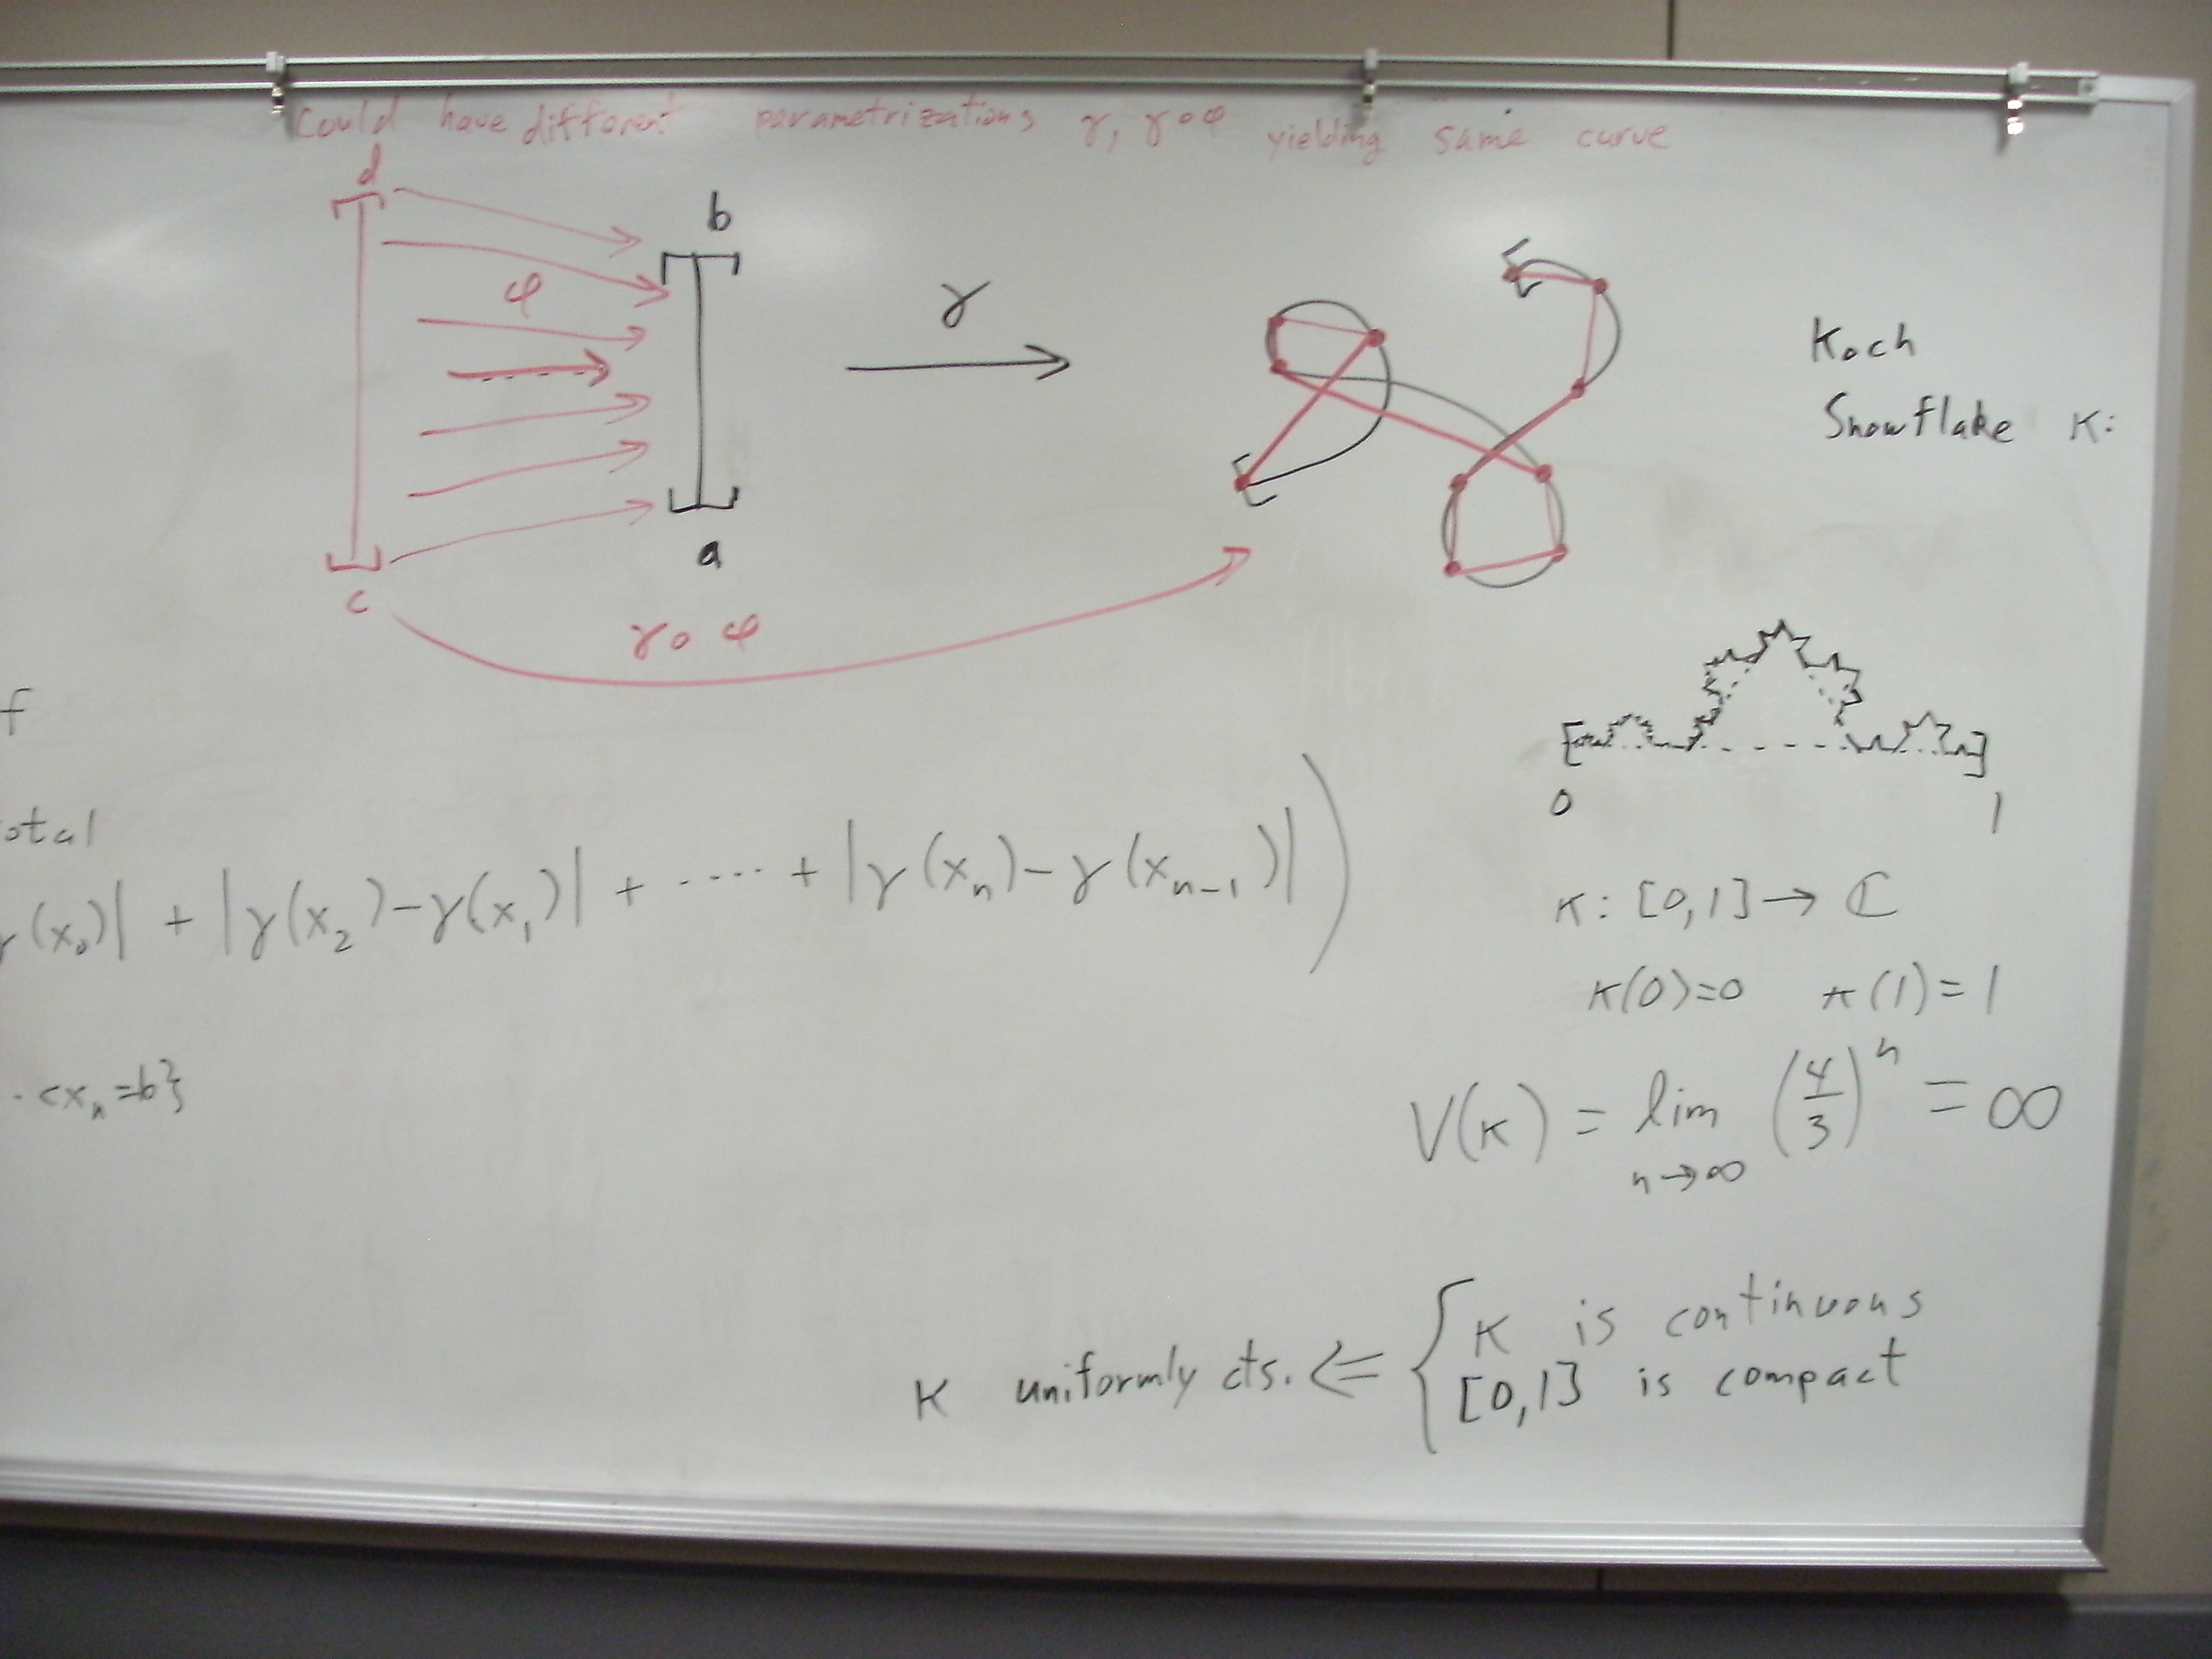 Could have different parametrizations γ, γ∘φ yielding same curve
d
b
φ
γ
Koch
Snowflake κ:
a
c
γ∘φ
f
otal
γ(x₀)| + |γ(x₂)-γ(x₁)| + ····· + |γ(xₙ)-γ(xₙ₋₁)|)
. <xₙ=b}
[ ]
0 1
κ: [0,1] → ℂ
κ(0)=0 κ(1)=1
V(κ) = lim (4/3)ⁿ = ∞
n→∞
κ uniformly cts. ⇐ { κ is continuous
[0,1] is compact